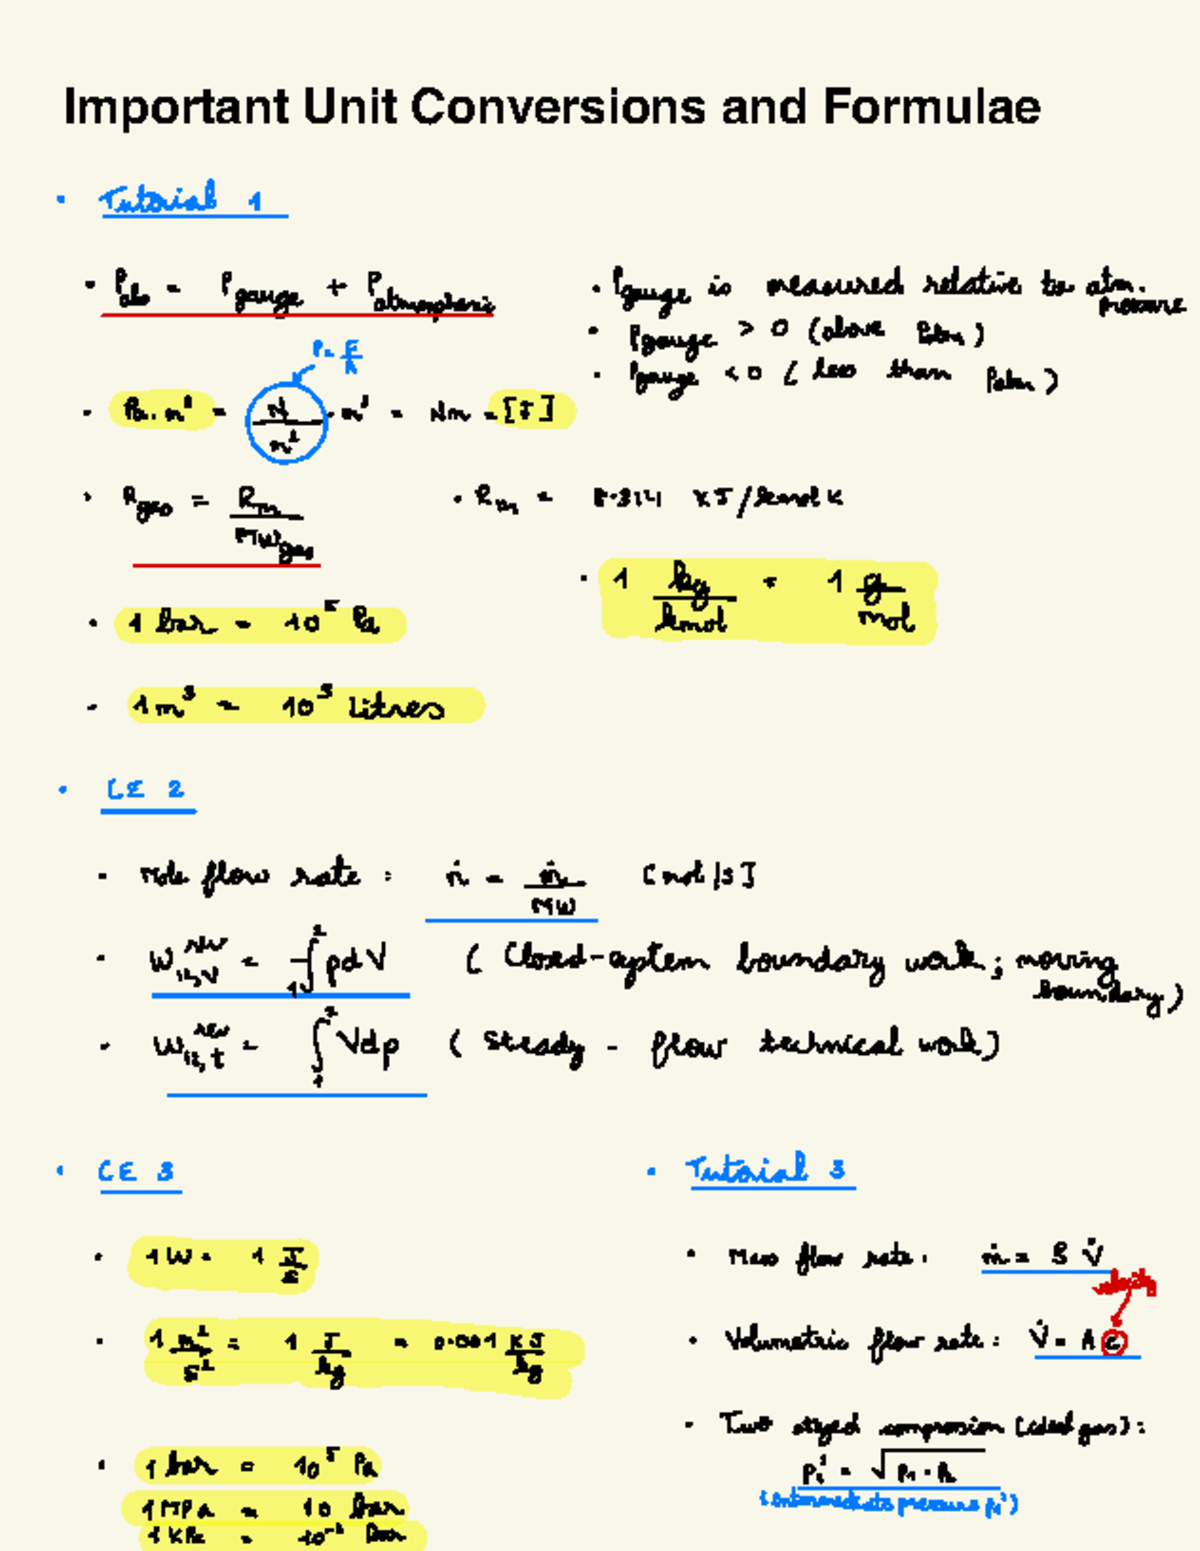 Important Unit Conversions and Formulae
• Tutorial 1
• P_abs = P_gauge + P_atmospheric
• P_gauge is measured relative to atm. pressure
• P_gauge > 0 (above P_atm)
• P_gauge < 0 (less than P_atm)
P = F/A
• Pa·m³ = N/m² · m³ = Nm = [J]
• R_gas = R_m / MW_gas
• R_m = 8.314 KJ/kmol K
• 1 kg/kmol = 1 g/mol
• 1 bar = 10⁵ Pa
• 1 m³ = 10³ litres
• CE 2
• Mole flow rate : ṅ = ṁ/MW [mol/s]
• W^rev_12,V = -∫₁² pdV (Closed-system boundary work; moving boundary)
• W^rev_12,t = ∫₁² Vdp (Steady - flow technical work)
• CE 3
• 1 W = 1 J/s
• 1 m²/s² = 1 J/kg = 0.001 KJ/kg
• 1 bar = 10⁵ Pa
1 MPa = 10 bar
1 KPa = 10⁻² bar
• Tutorial 3
• Mass flow rate : ṁ = ρ V̇
velocity
• Volumetric flow rate : V̇ = A c
• Two staged compression (ideal gas) :
p₁' = √(p₁ · p₂)
(intermediate pressure p₁')